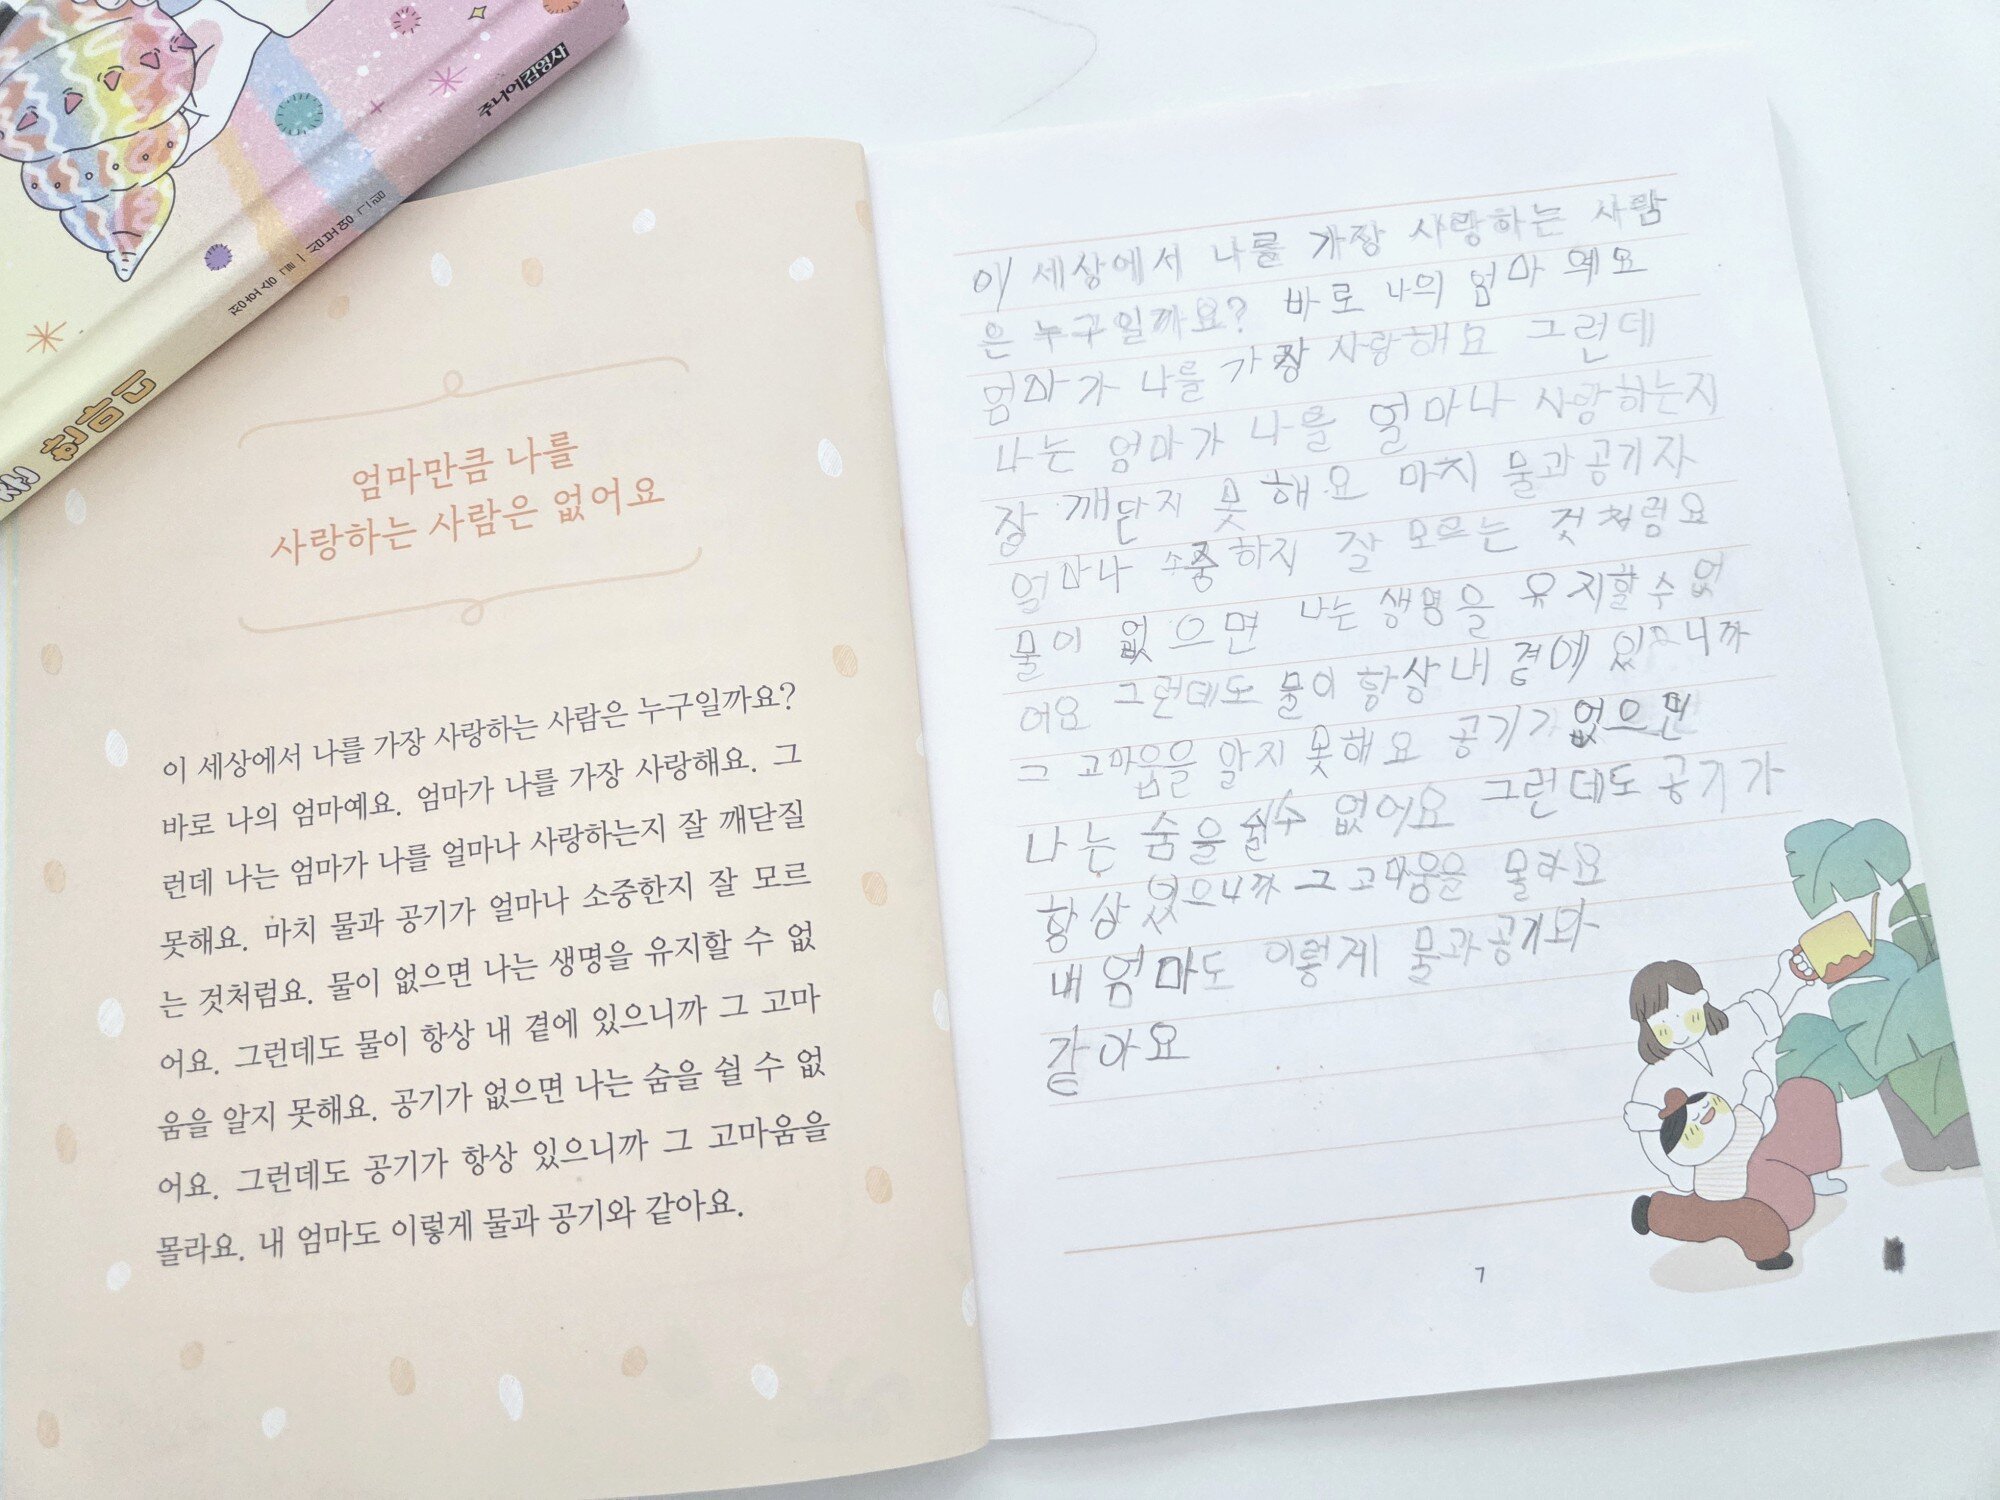 주니어김영사
정영은 그림
흔한
엄마만큼 나를
사랑하는 사람은 없어요
이 세상에서 나를 가장 사랑하는 사람은 누구일까요?
바로 나의 엄마예요. 엄마가 나를 가장 사랑해요. 그
런데 나는 엄마가 나를 얼마나 사랑하는지 잘 깨닫질
못해요. 마치 물과 공기가 얼마나 소중한지 잘 모르
는 것처럼요. 물이 없으면 나는 생명을 유지할 수 없
어요. 그런데도 물이 항상 내 곁에 있으니까 그 고마
움을 알지 못해요. 공기가 없으면 나는 숨을 쉴 수 없
어요. 그런데도 공기가 항상 있으니까 그 고마움을
몰라요. 내 엄마도 이렇게 물과 공기와 같아요.
이 세상에서 나를 가장 사랑하는 사람
은 누구일까요? 바로 나의 엄마 예요
엄마가 나를 가장 사랑해요 그런데
나는 엄마가 나를 얼마나 사랑하는지
잘 깨닫지 못 해요 마치 물과공기자
얼마나 소중하지 잘 모르는 것처럼요
물이 없으면 나는 생명을 유지할수없
어요 그런데도 물이 항상내 곁에 있으니까
그 고마움을 알지 못해요 공기가없으면
나는 숨을쉴수 없어요 그런데도공기가
항상있으니까 그고마움을 몰라요
내엄마도 이렇게 물과공기와
같아요
7